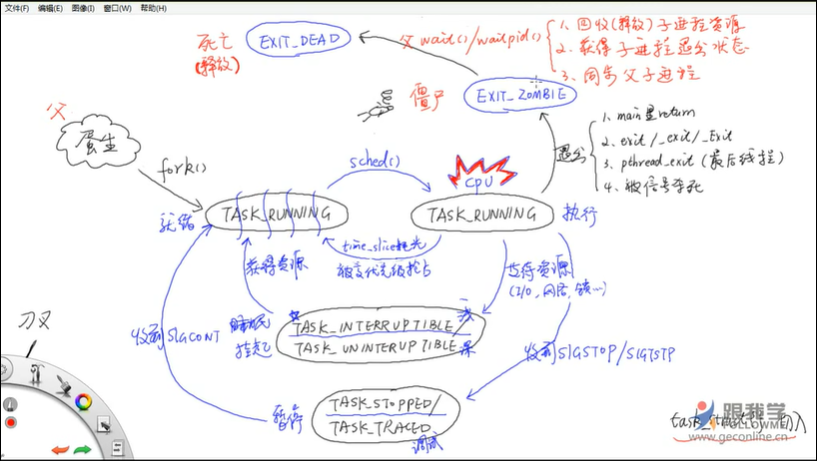 文件(F) 编辑(E) 图像(I) 窗口(W) 帮助(H)
死亡
(释放)
EXIT_DEAD
父 wait()/waitpid()
1. 回收(释放)子进程资源
2. 获得子进程退出状态
3. 同步父子进程
僵尸
EXIT_ZOMBIE
父
蛋生
fork()
退出
1. main里return
2. exit/_exit/_Exit
3. pthread_exit(最后线程)
4. 被信号杀死
sched()
CPU
就绪
TASK_RUNNING
TASK_RUNNING
执行
time_slice耗光
被高优先级抢占
获得资源
等待资源
(I/O, 网络, 锁...)
睡眠
挂起
TASK_INTERRUPTIBLE/
TASK_UNINTERUPTIBLE
收到SIGCONT
收到SIGSTOP/SIGTSTP
刀叉
暂停
TASK_STOPPED/
TASK_TRACED
调试
跟我学
FOLLOWME
www.geconline.cn